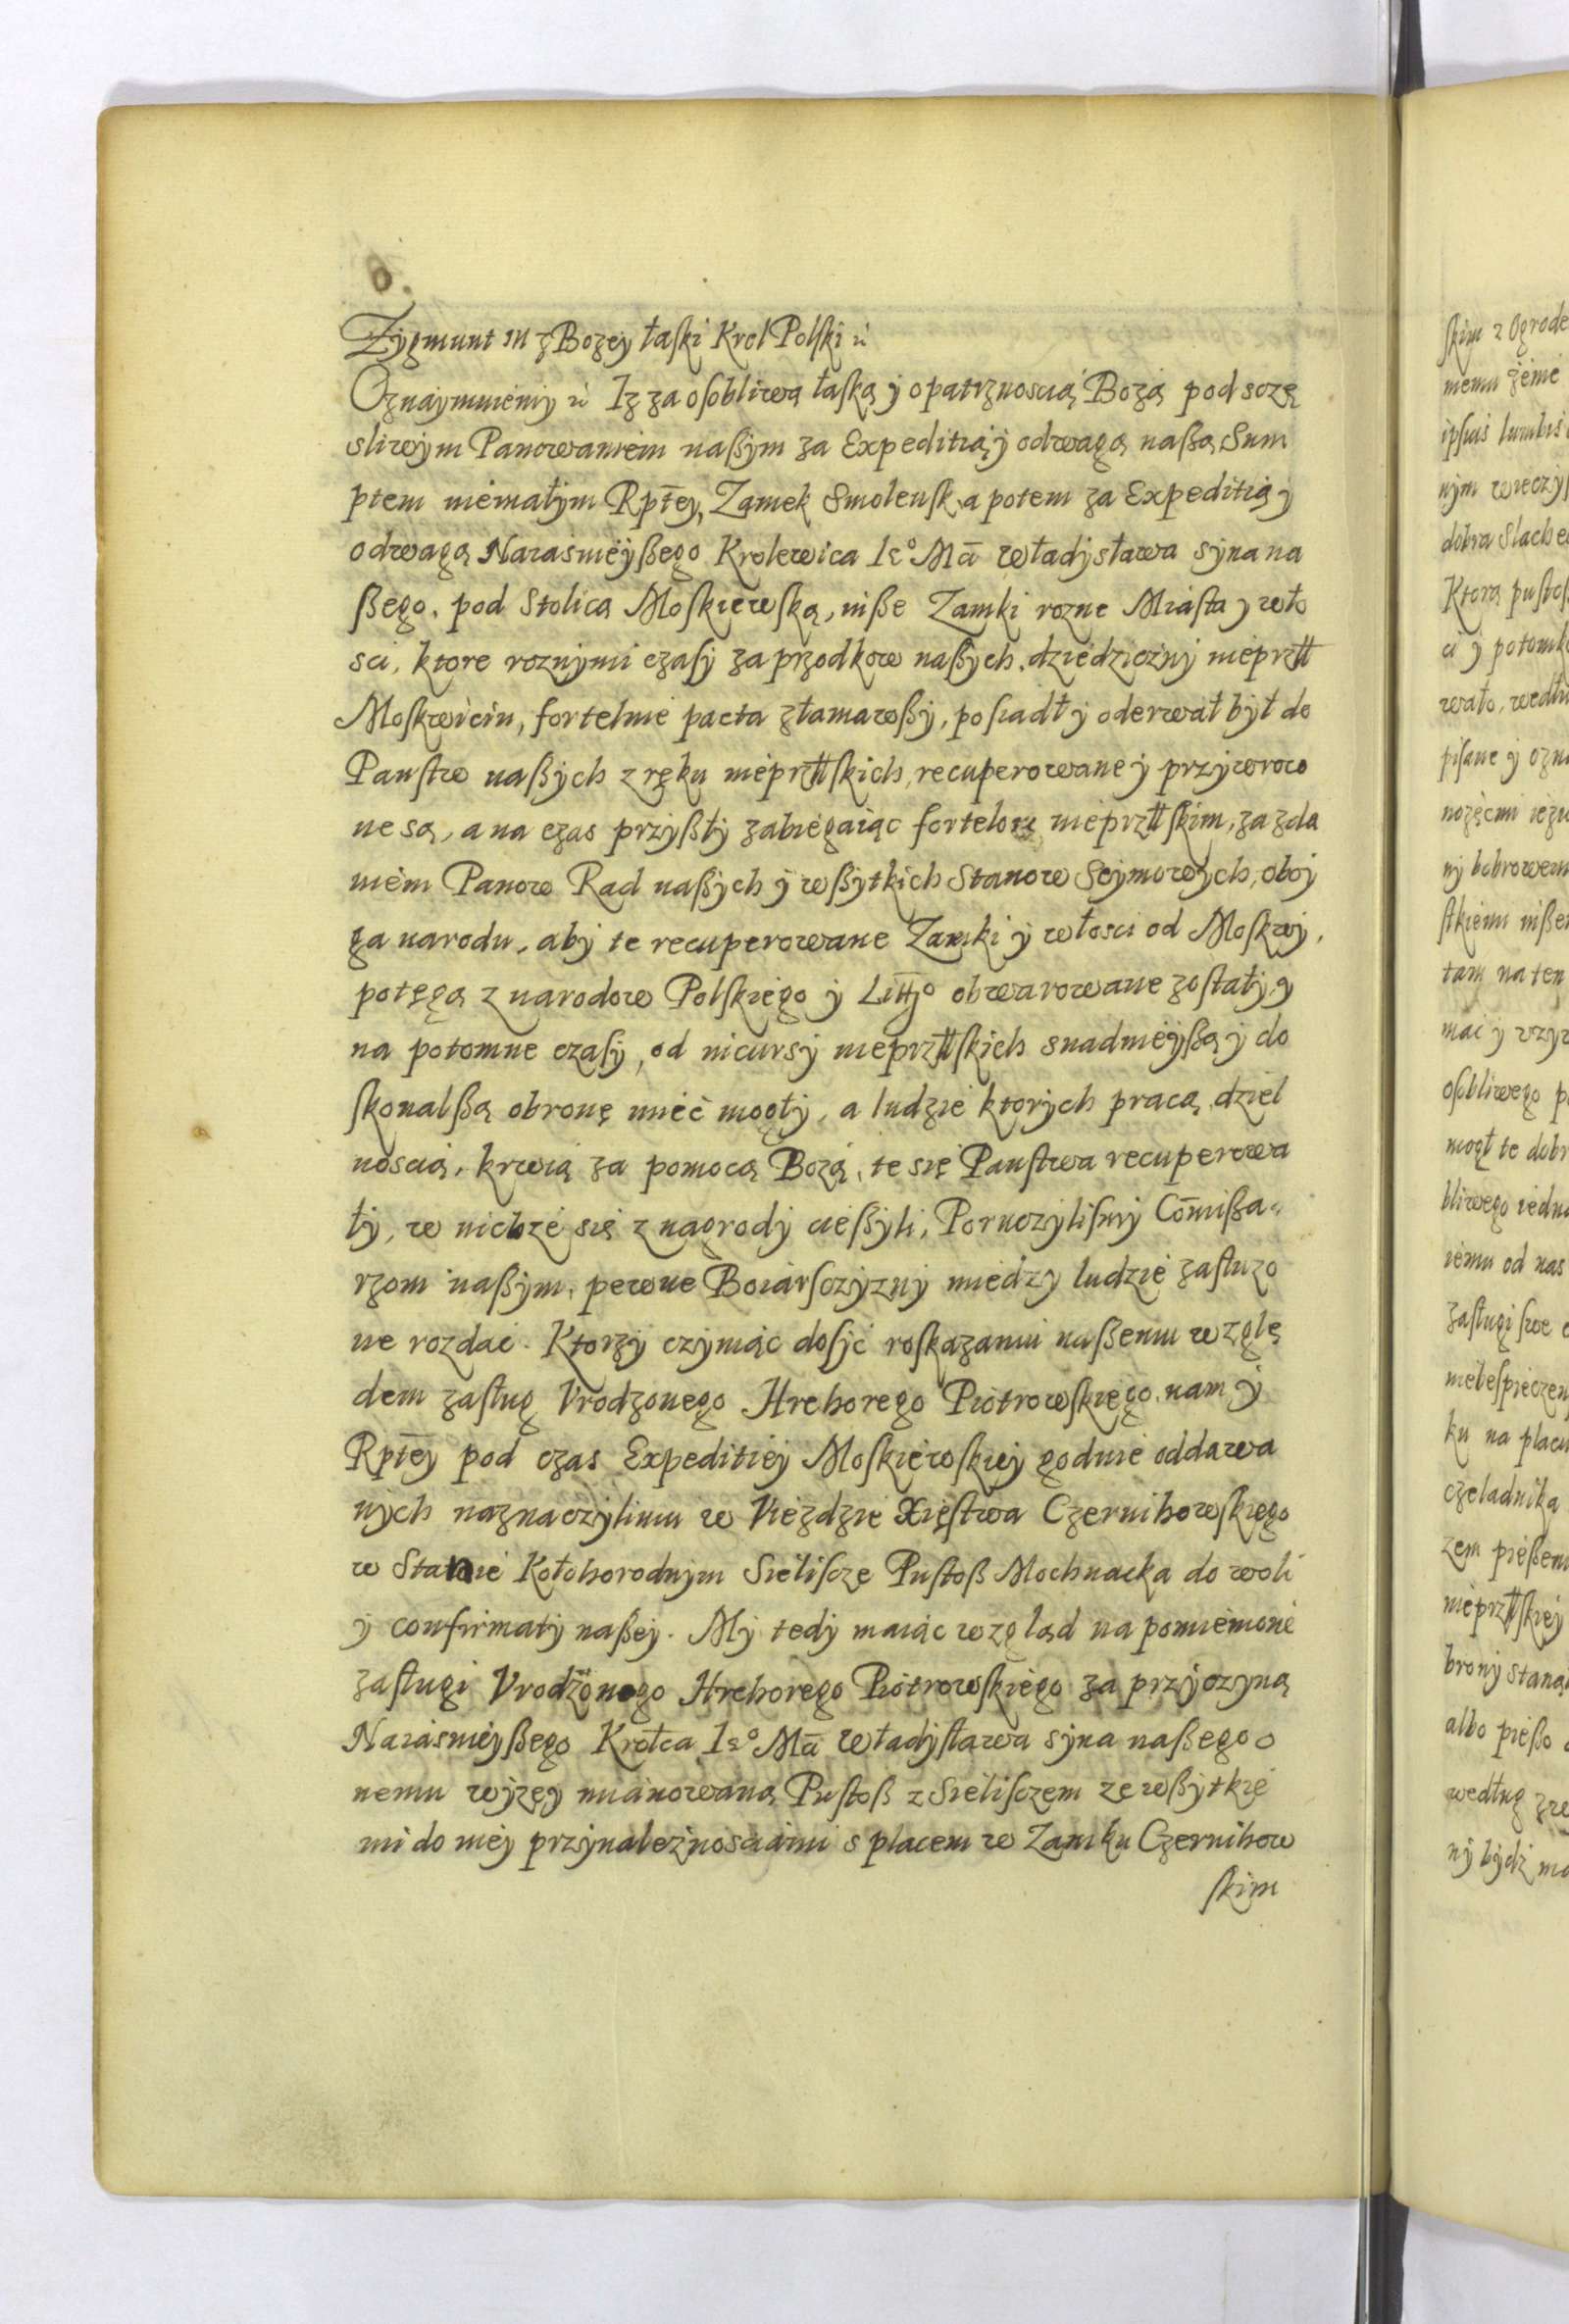 6.
Zygmunt III z Bozey łaski Krol Polski ıc
Oznaymuiemy ıc Iz za osobliwą łaską y opatrznoscią Bozą pod sczę
sliwym Panowaniem naßym za Expeditią y odwagą naßą Sum
ptem niemałym Rptey, Zamek Smolensk, a potem za Expeditią y
odwagą Naiasnieyßego Krolewica Ie° Mci Władysława syna na
ßego, pod Stolicą Moskiewską, inße Zamki rozne Miasta y wło
sci, ktore roznymi czasy za przodkow naßych, dziedziczny nieprzŧŧ
Moskwicin, fortelnie pacta złamawßy, posiadł y oderwał był do
Panstw naßych z ręku nieprzŧŧskich, recuperowane y przywroco
ne są, a na czas przyßły zabiegaiąc fortelom nieprzŧŧskim, za zda
niem Panow Rad naßych y wßytkich Stanow Seymowych, oboy
ga narodu, aby te recuperowane Zamki y włosci od Moskwy,
potęgą z narodow Polskiego y Litto obwarowane zostały, y
na potomne czasy, od nicursy nieprzŧŧskich snadnieyßą y do
skonalßą obronę mieć mogły, a ludzie ktorych pracą, dziel
noscią, krwią za pomocą Bozą, te się Panstwa recuperowa
ły, w nichze się z nagrody cießyli, Poruczylismy Comißa-
rzom naßym, pewne Boiarsczyzny miedzy ludzie zasłuzo
ne rozdać. Ktorzy czyniąc dosyć roskazaniu naßemu wzglę
dem zasług Vrodzonego Hrehorego Piotrowskiego, nam y
Rptey pod czas Expeditiey Moskiewskiey godnie oddawa
nych naznaczyli mu w Viezdzie Xięstwa Czernihowskiego
w Stanie Kołohorodnym Sieliscze Pustoß Mochnacka do woli
y confirmaty naßey. My tedy maiąc wzgląd na pomienione
zasługi Vrodzonego Hrehorego Piotrowskiego za przyczyną
Naiasnieyßego Krołca Ie° Mci Władysława syna naßego o
nemu wyzey mianowaną Pustoß z Sielisczem ze wßytkie
mi do niey przynaleznosciami s placem w Zamku Czernihow
skim
skim z Ogrode
nemu zenie
ipsius lumbis
nym wieczys
dobra Slache
Ktora pustos
ci y potomk
wało, wedłu
pisane y ozn
ny bobrowem
stkiemi inße
tam na ten
mai y vzyw
osobliwego p
mogł te dobr
bliwego iedna
iemu od nas
zasługi swe
niebespieczen
ku na placu
czeladnika
zem pießem
nieprzŧŧskiey
brony staną
albo pießo
według
ny bydz ma